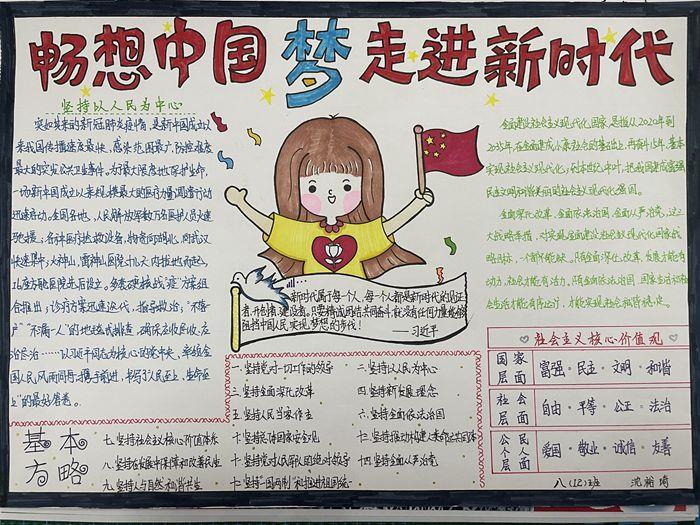 畅想中国梦走进新时代
坚持以人民为中心
突如其来的新冠肺炎疫情,是新中国成立以
来我国传播速度最快、感染范围最广、防控难度
最大的突发公共卫生事件。为了最大限度地保护生命,
一场新中国成立以来规模最大的医疗力量调遣行动
迅速启动。全国各地、人民解放军数万名医护人员火速
驰援。各种医疗抢救设备、物资向湖北、向武汉
快速集
火神山、雷神山医院
几座方舱医院
组合推出;诊疗方案迅速迭代,指导救治;“不落一
户”“不漏一人”的地毯式排查,确保应收尽收、应
治尽治
以习近平同志为核心的党中央,率领全
国人民,风雨同舟,携手前进,书写了人民至上、生命至
上”的最好答卷。
新时代属于每个人,每一个人都是新时代的见证
者、开创者、建设者。只要精诚团结共同奋斗,就没有任何力量能够
阻挡中国人民实现梦想的步伐!
——习近平
全面建设社会主义现代化国家,是指从2020年到
2035年,在全面建成小康社会的基础上,再奋斗15年,基本
实现社会主义现代化;到本世纪中叶,把我国建成富强
民主文明和谐美丽的社会主义现代化强国。
全面深化改革、全面依法治国、全面从严治党,这三
大战略举措,对实现全面建设社会主义现代化国家战
略目标,一个都不能缺。不全面深化改革,发展就缺少
动力,社会就没有活力。不全面依法治国,国家生活和社
会生活就不能有序运行,就难以实现社会和谐稳定。
社会主义核心价值观
国家层面 富强·民主·文明·和谐
社会层面 自由·平等·公正·法治
公民个人层面 爱国·敬业·诚信·友善
基本方略
一.坚持党对一切工作的领导
二.坚持以人民为中心
三.坚持全面深化改革
四.坚持新发展理念
五.坚持人民当家作主
六.坚持全面依法治国
七.坚持社会主义核心价值体系
八.坚持在发展中保障和改善民生
九.坚持人与自然和谐共生
十.坚持总体国家安全观
十一.坚持党对人民军队的绝对领导
十二.坚持“一国两制”和推进祖国统一
十三.坚持推动构建人类命运共同体
十四.坚持全面从严治党
八(12)班